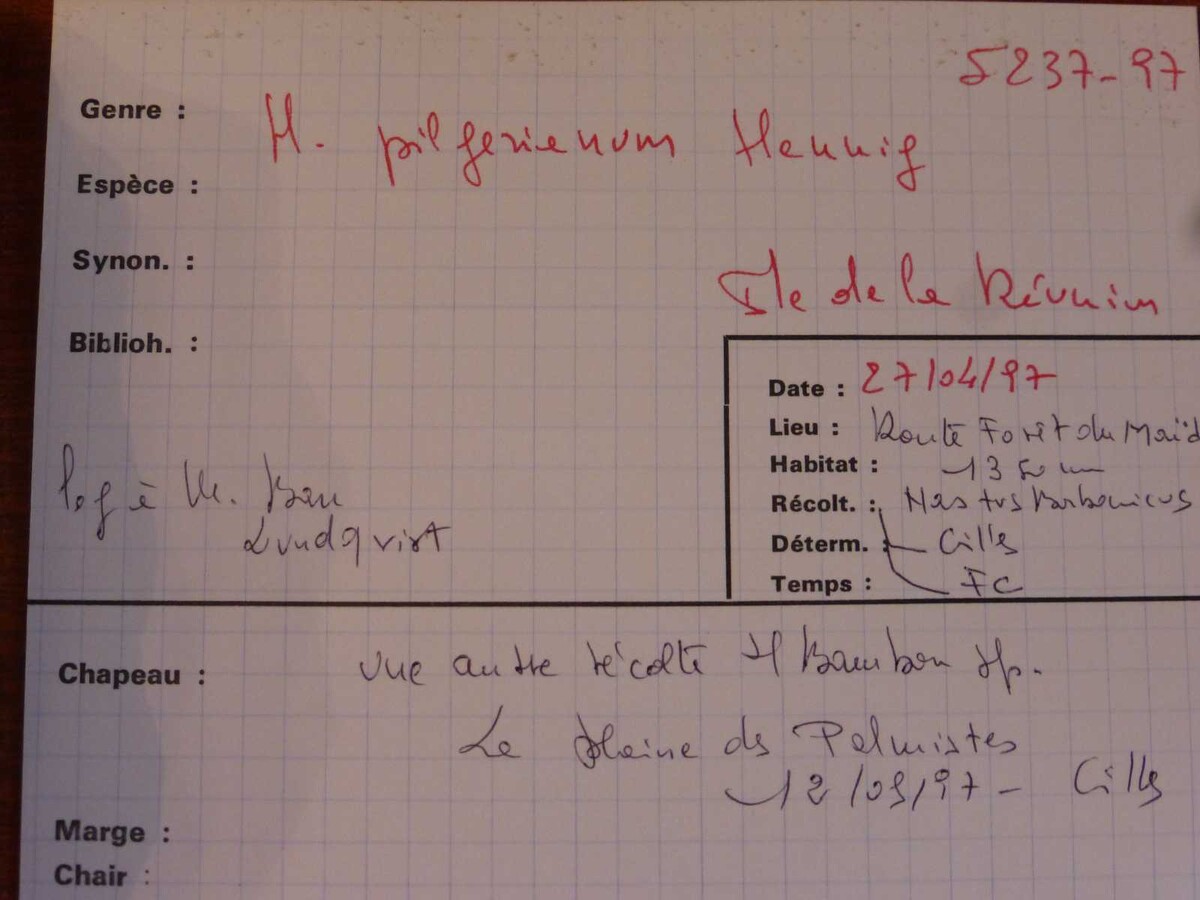 5237-97
Genre :
H. pilgerienum Hennig
Espèce :
Synon. :
Ile de la Réunion
Biblioh. :
Date : 27/04/97
Lieu : Route Forêt du Maïd
Habitat : 1350 m
Récolt. : Nastus Borbonicus
Déterm. : Cilles
Temps : FC
leg à M.
Lundqvist
Chapeau : vue autre récolte
La Plaine des Palmistes
12/03/97 - Cilles
Marge :
Chair :